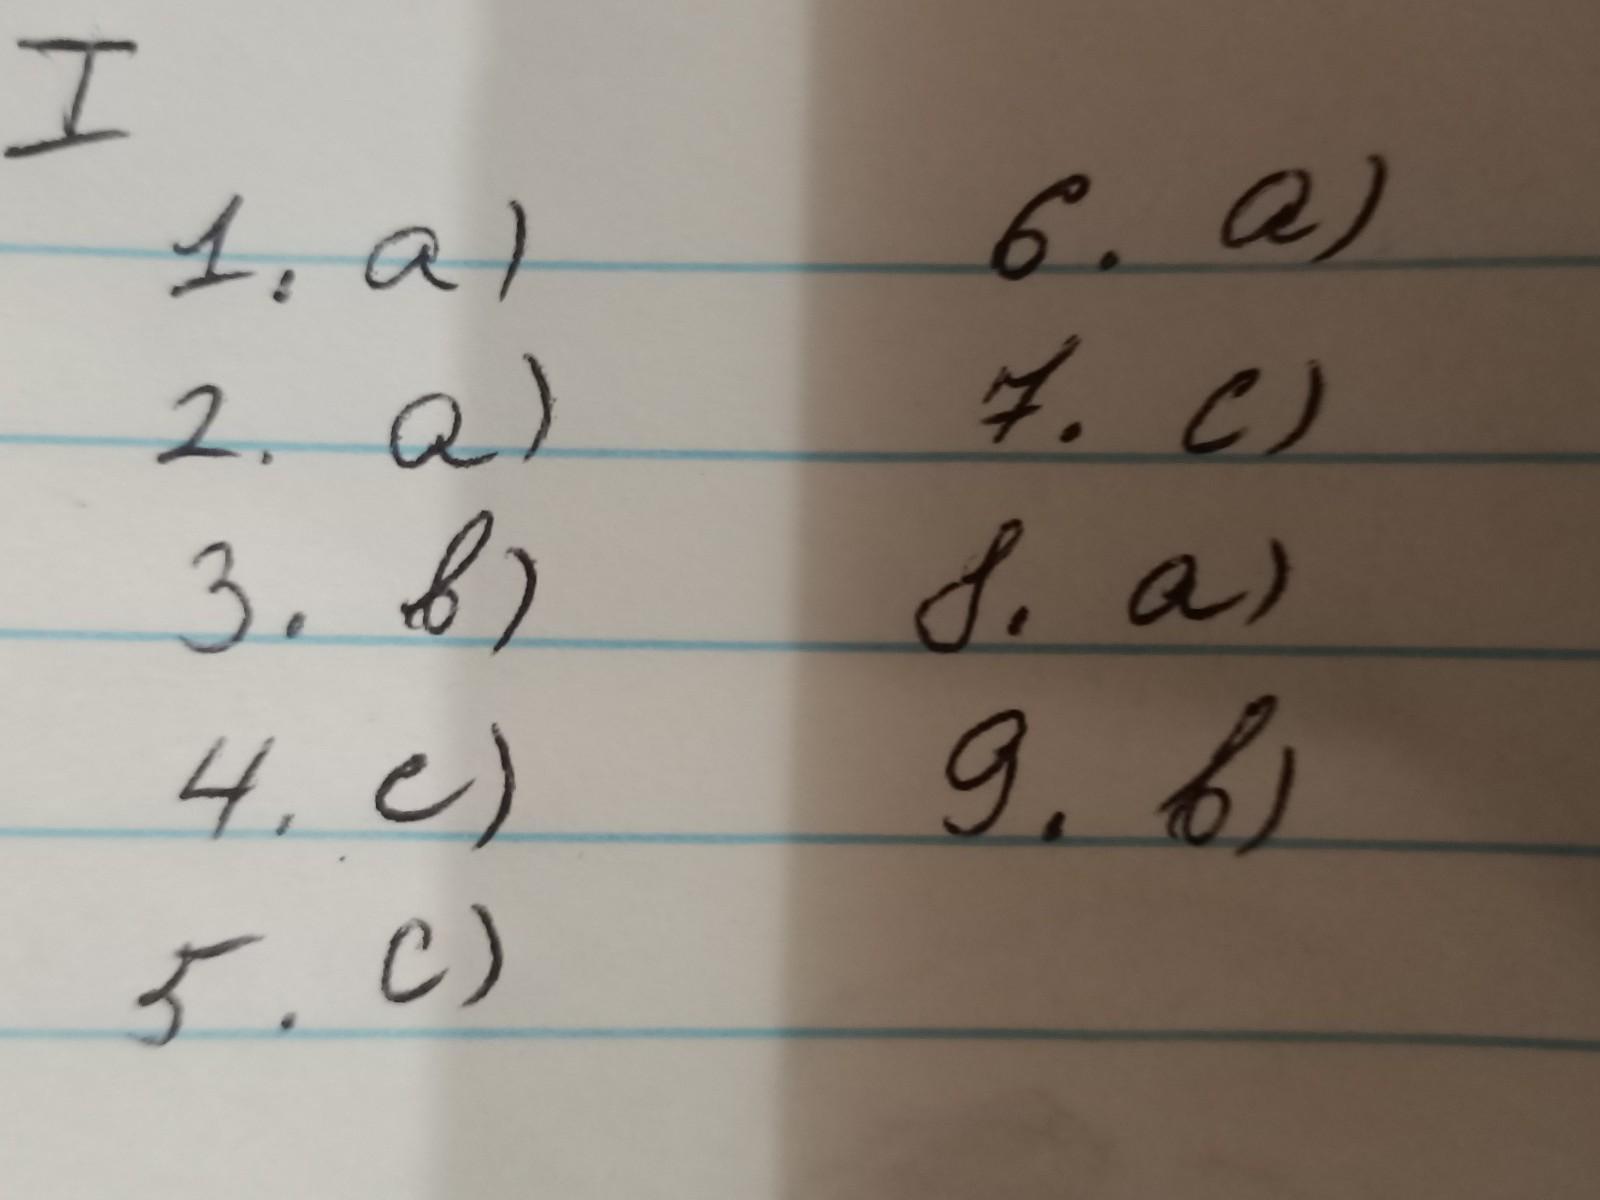 I
1. a)
2. a)
3. b)
4. c)
5. c)
6. a)
7. c)
8. a)
9. b)